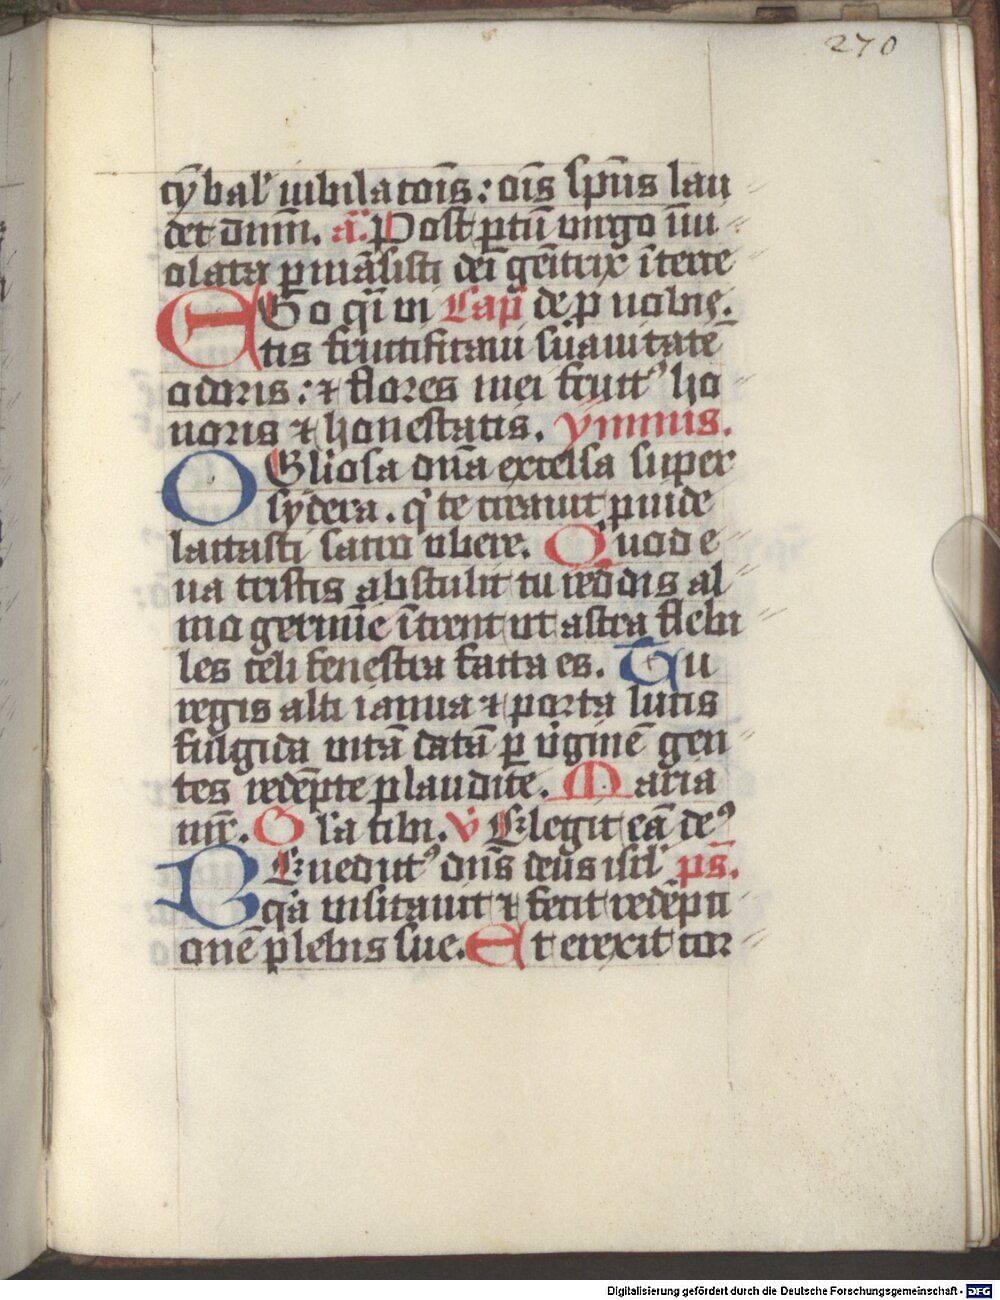 270
cȳbal' iubilatōis: oīs sp̄us lau
det dnm̄. a᷑. Post ꝑtū virgo īui
olata ꝑmāsisti dei gēitrix ītere
EGo qⁱ vi Cap̄ de ꝑ nobis.
tis fructificaui suauitatē
odoris: ⁊ flores mei fruct⁹ ho
noris ⁊ honestatis. ymnus.
O Gl'iosa dn̄a excelsa super
sydera. qⁱ te creauit ꝓuide
lactasti sacro vbere. Quod e
ua tristis abstulit tu reddis al
mo germīe ītrent vt astra flebi
les celi fenestra facta es. Tu
regis alti ianua ⁊ porta lucis
fulgida vitā datā ꝑ v̓ginē gen
tes redēpte plaudite. Maria
mr̄. Gl'a tibi. v̓ Elegit eā de⁹
BEnedict⁹ dn̄s deus isrl' ps̄.
qa visitauit ⁊ fecit redēpti
onē plebis sue. Et erexit cor
Digitalisierung gefördert durch die Deutsche Forschungsgemeinschaft - DFG